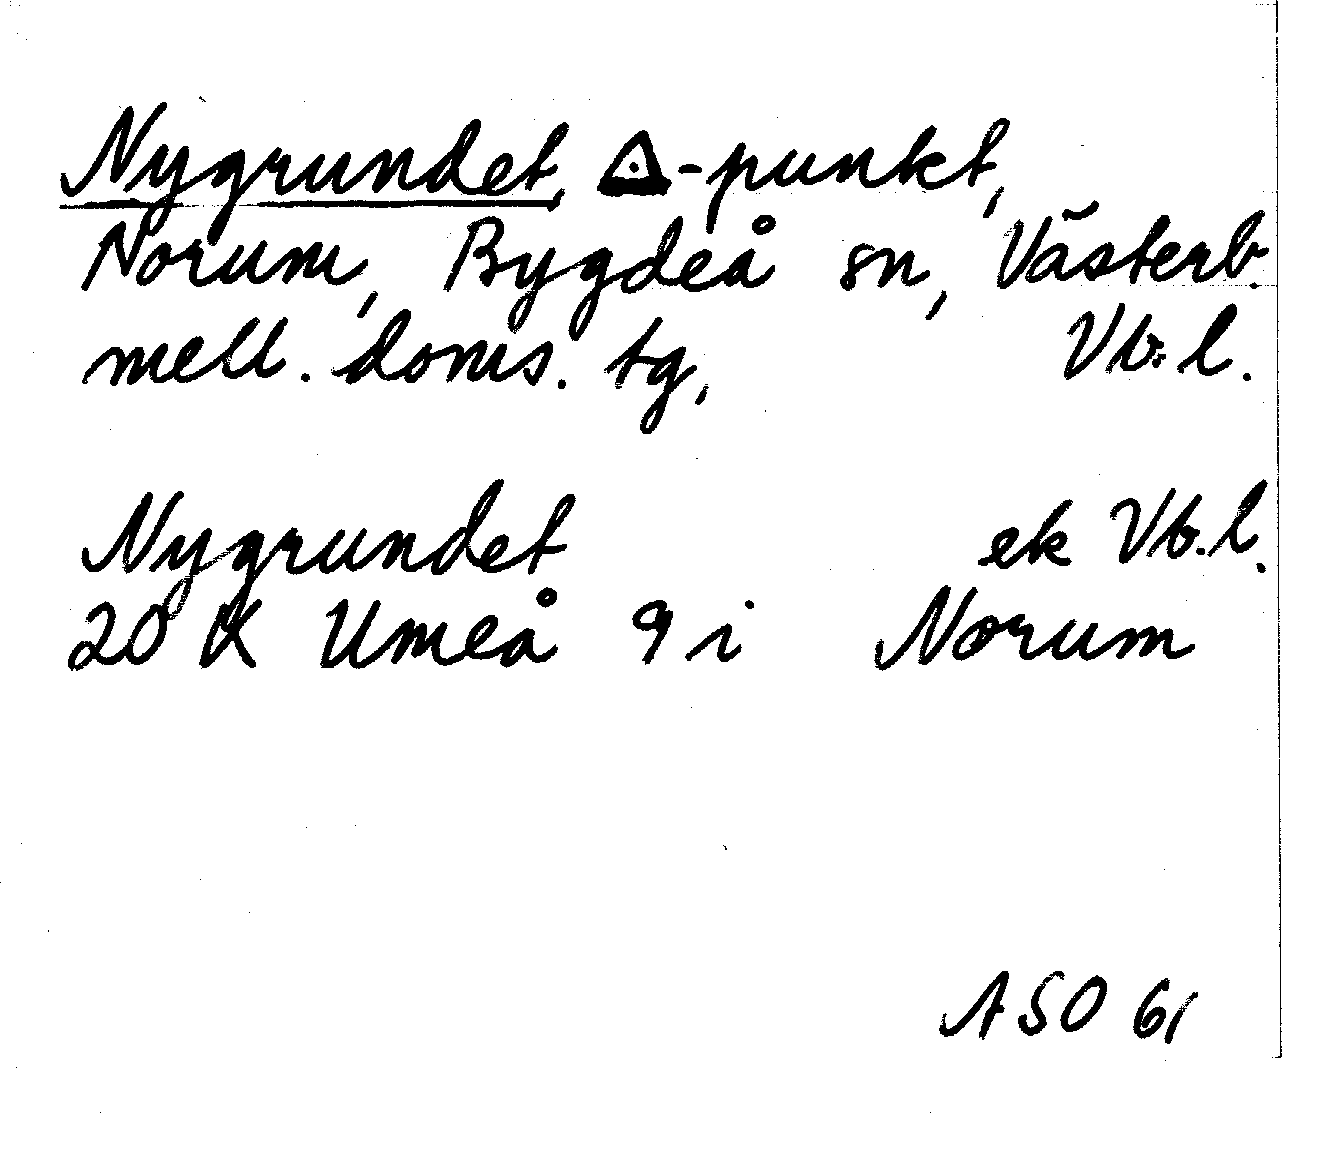 Nygrundet, △-punkt,
Norum, Bygdeå sn, Västerb.
mell. doms. tg, Vb. l.
Nygrundet ek Vb. l.
20 K Umeå 9 i Norum
ASO 61